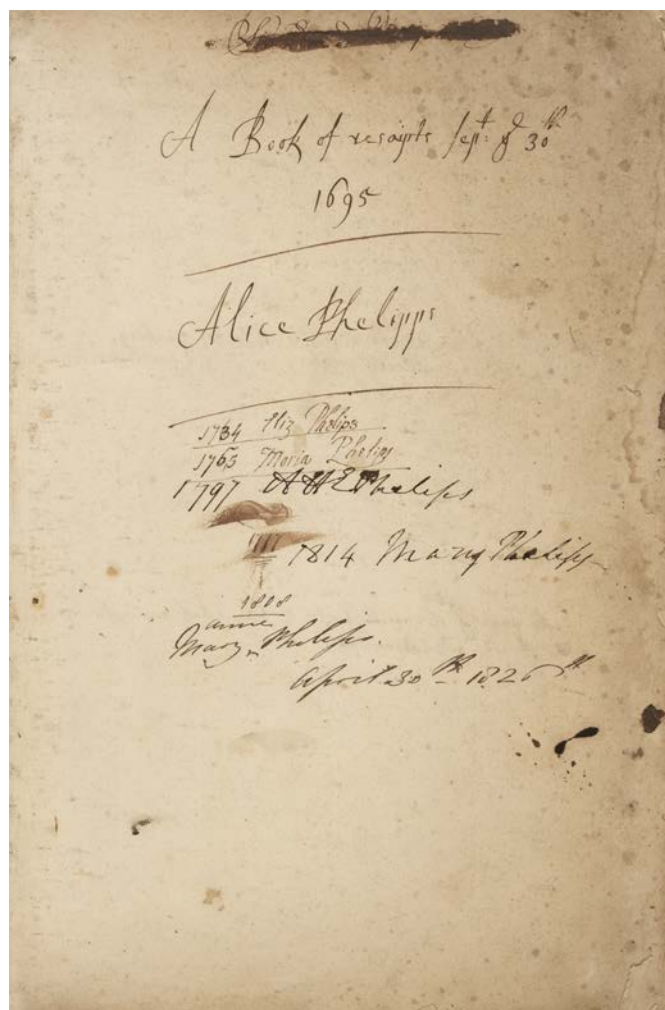 A Book of resaipts sept: ye 30th
1695
Alice Phelipps
1734 Eliz Phelips
1765 Maria Phelips
1797 Phelips
1814 Mary Phelips
1808
anne
Mary Phelips.
April 30th 1826th